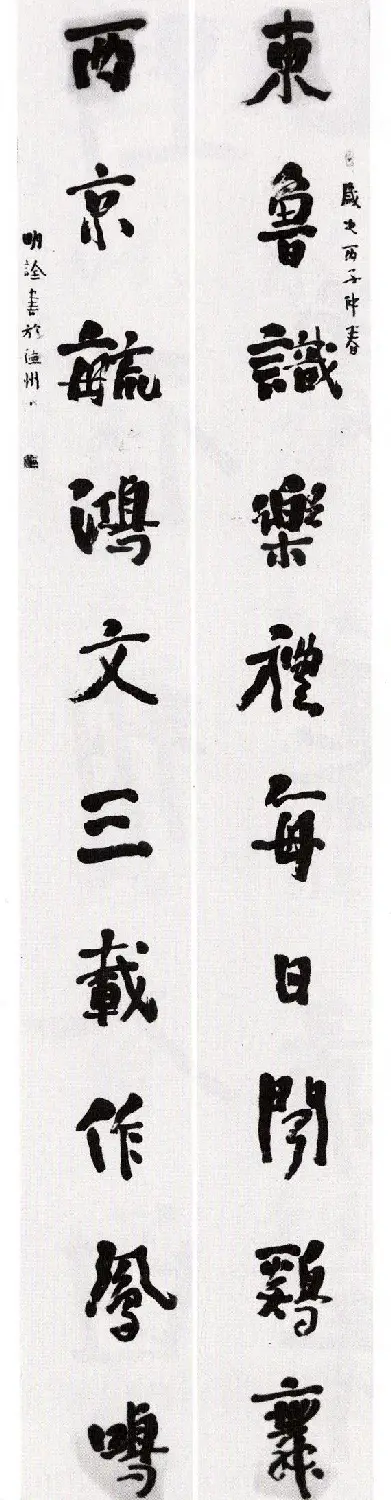 歲次丙子仲春
東魯識樂禮每日聞鷄舞
西京毓鴻文三載作鳳鳴
明詮書於德州